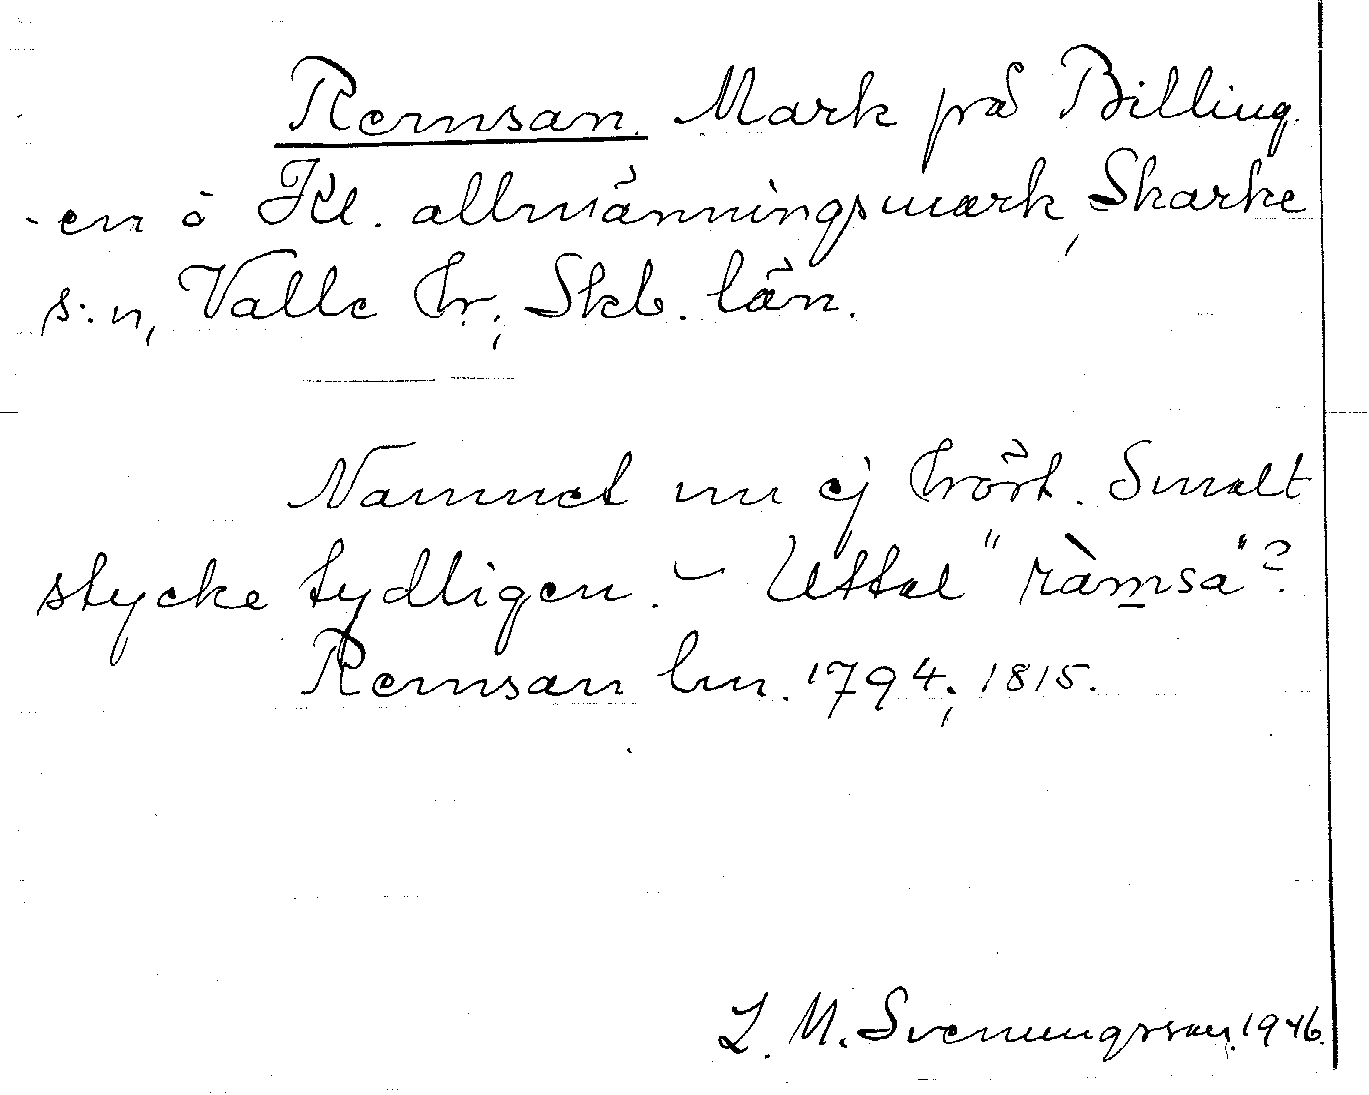 Remsan. Mark på Billing-
-en å Kl. allmänningsmark, Skarke
s:n, Valle hr, Skb. län.
Namnet nu ej hört. Smalt
stycke tydligen. – Uttal "ràmsa"?
Remsan lm. 1794, 1815.
L. M. Svenungsson. 1946.